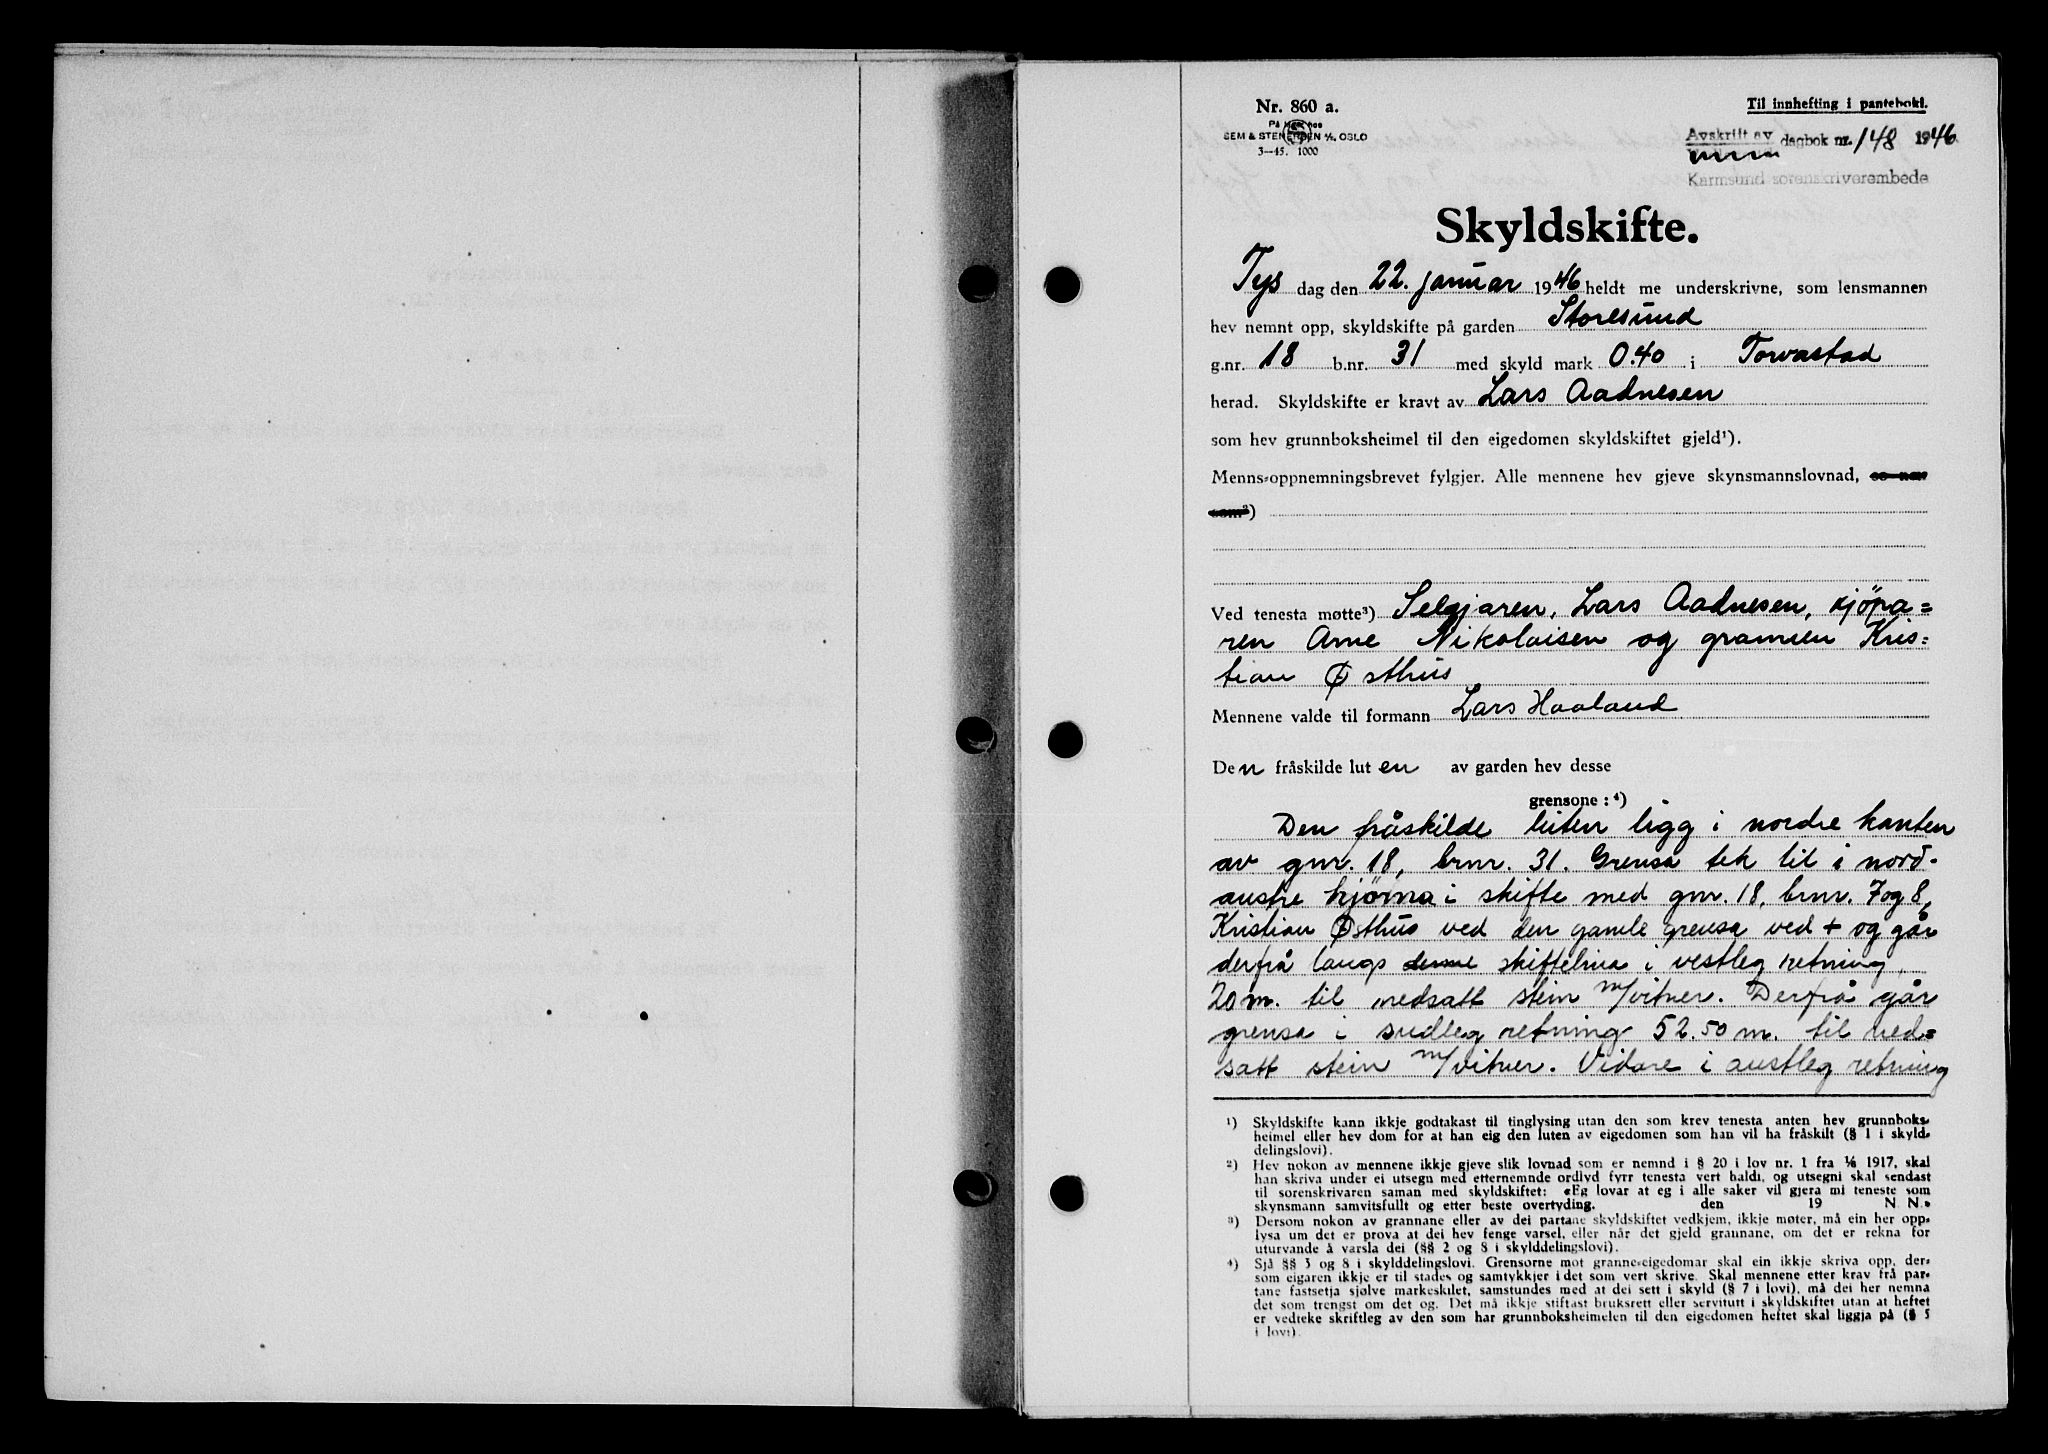 Nr. 860 a.
SEM & STENERSEN A/S, OSLO
3—45. 1000
Til innhefting i pantebokl.
Avskrift av
dagbok nr. 148 1946
Karmsund sorenskriverembede
Skyldskifte.
Tys dag den 22. januar 1946 heldt me underskrivne, som lensmannen
hev nemnt opp, skyldskifte på garden Storesund
g.nr. 18 b.nr. 31 med skyld mark 0.40 i Torvastad
herad. Skyldskifte er kravt av Lars Aadnesen
som hev grunnboksheimel til den eigedomen skyldskiftet gjeld¹).
Menns-oppnemningsbrevet fylgjer. Alle mennene hev gjeve skynsmannslovnad, so nær
som²)
Ved tenesta møtte³) Selgjaren, Lars Aadnesen, kjöpa=
ren Arne Nikolaisen og grannen Kris=
tian Østhus
Mennene valde til formann Lars Haaland
Den fråskilde luten av garden hev desse
grensone: ⁴)
Den fråskilde luten ligg i nordre kanten
av gnr. 18, brnr. 31. Grensa tek til i nord-
austre hjørna i skifte med gnr. 18, brnr. 7 og 8,
Kristian Østhus ved den gamle grensa ved + og går
derfrå langs denne skiftelina i vestleg retning
20 m. til nedsatt stein m/vitner. Derfrå går
grensa i sudleg retning 52.50 m. til ned=
satt stein m/vitner. Vidare i austleg retning
¹) Skyldskifte kann ikkje godtakast til tinglysing utan den som krev tenesta anten hev grunnboks-
heimel eller hev dom for at han eig den luten av eigedomen som han vil ha fråskilt (§ 1 i skyld-
delingslovi).
²) Hev nokon av mennene ikkje gjeve slik lovnad som er nemnd i § 20 i lov nr. 1 fra 1/6 1917, skal
han skriva under ei utsegn med etternemnde ordlyd fyrr tenesta vert haldi, og utsegni skal sendast
til sorenskrivaren saman med skyldskiftet: «Eg lovar at eg i alle saker vil gjera mi teneste som
skynsmann samvitsfullt og etter beste overtyding. den 19 N. N.»
³) Dersom nokon av grannane eller av dei partane skyldskiftet vedkjem, ikkje møter, må ein her opp-
lysa um det er prova at dei hev fenge varsel, eller når det gjeld grannane, om det er rekna for
uturvande å varsla dei (§§ 2 og 8 i skylddelingslovi).
⁴) Sjå §§ 3 og 8 i skylddelingslovi. Grensorne mot granne-eigedomar skal ein ikkje skriva opp, der-
som eigaren ikkje er til stades og samtykkjer i det som vert skrive. Skal mennene etter krav frå par-
tane fastsetja sjølve markeskilet, samstundes med at dei sett i skyld (§ 7 i lovi), må dei her nemna
det som trengst om det og. Det må ikkje stiftast bruksrett eller servitutt i skyldskiftet utan at heftet
er vedteke skriftleg av den som har grunnboksheimelen til den eigedomen heftet skal liggja på (§ 5
i lovi).